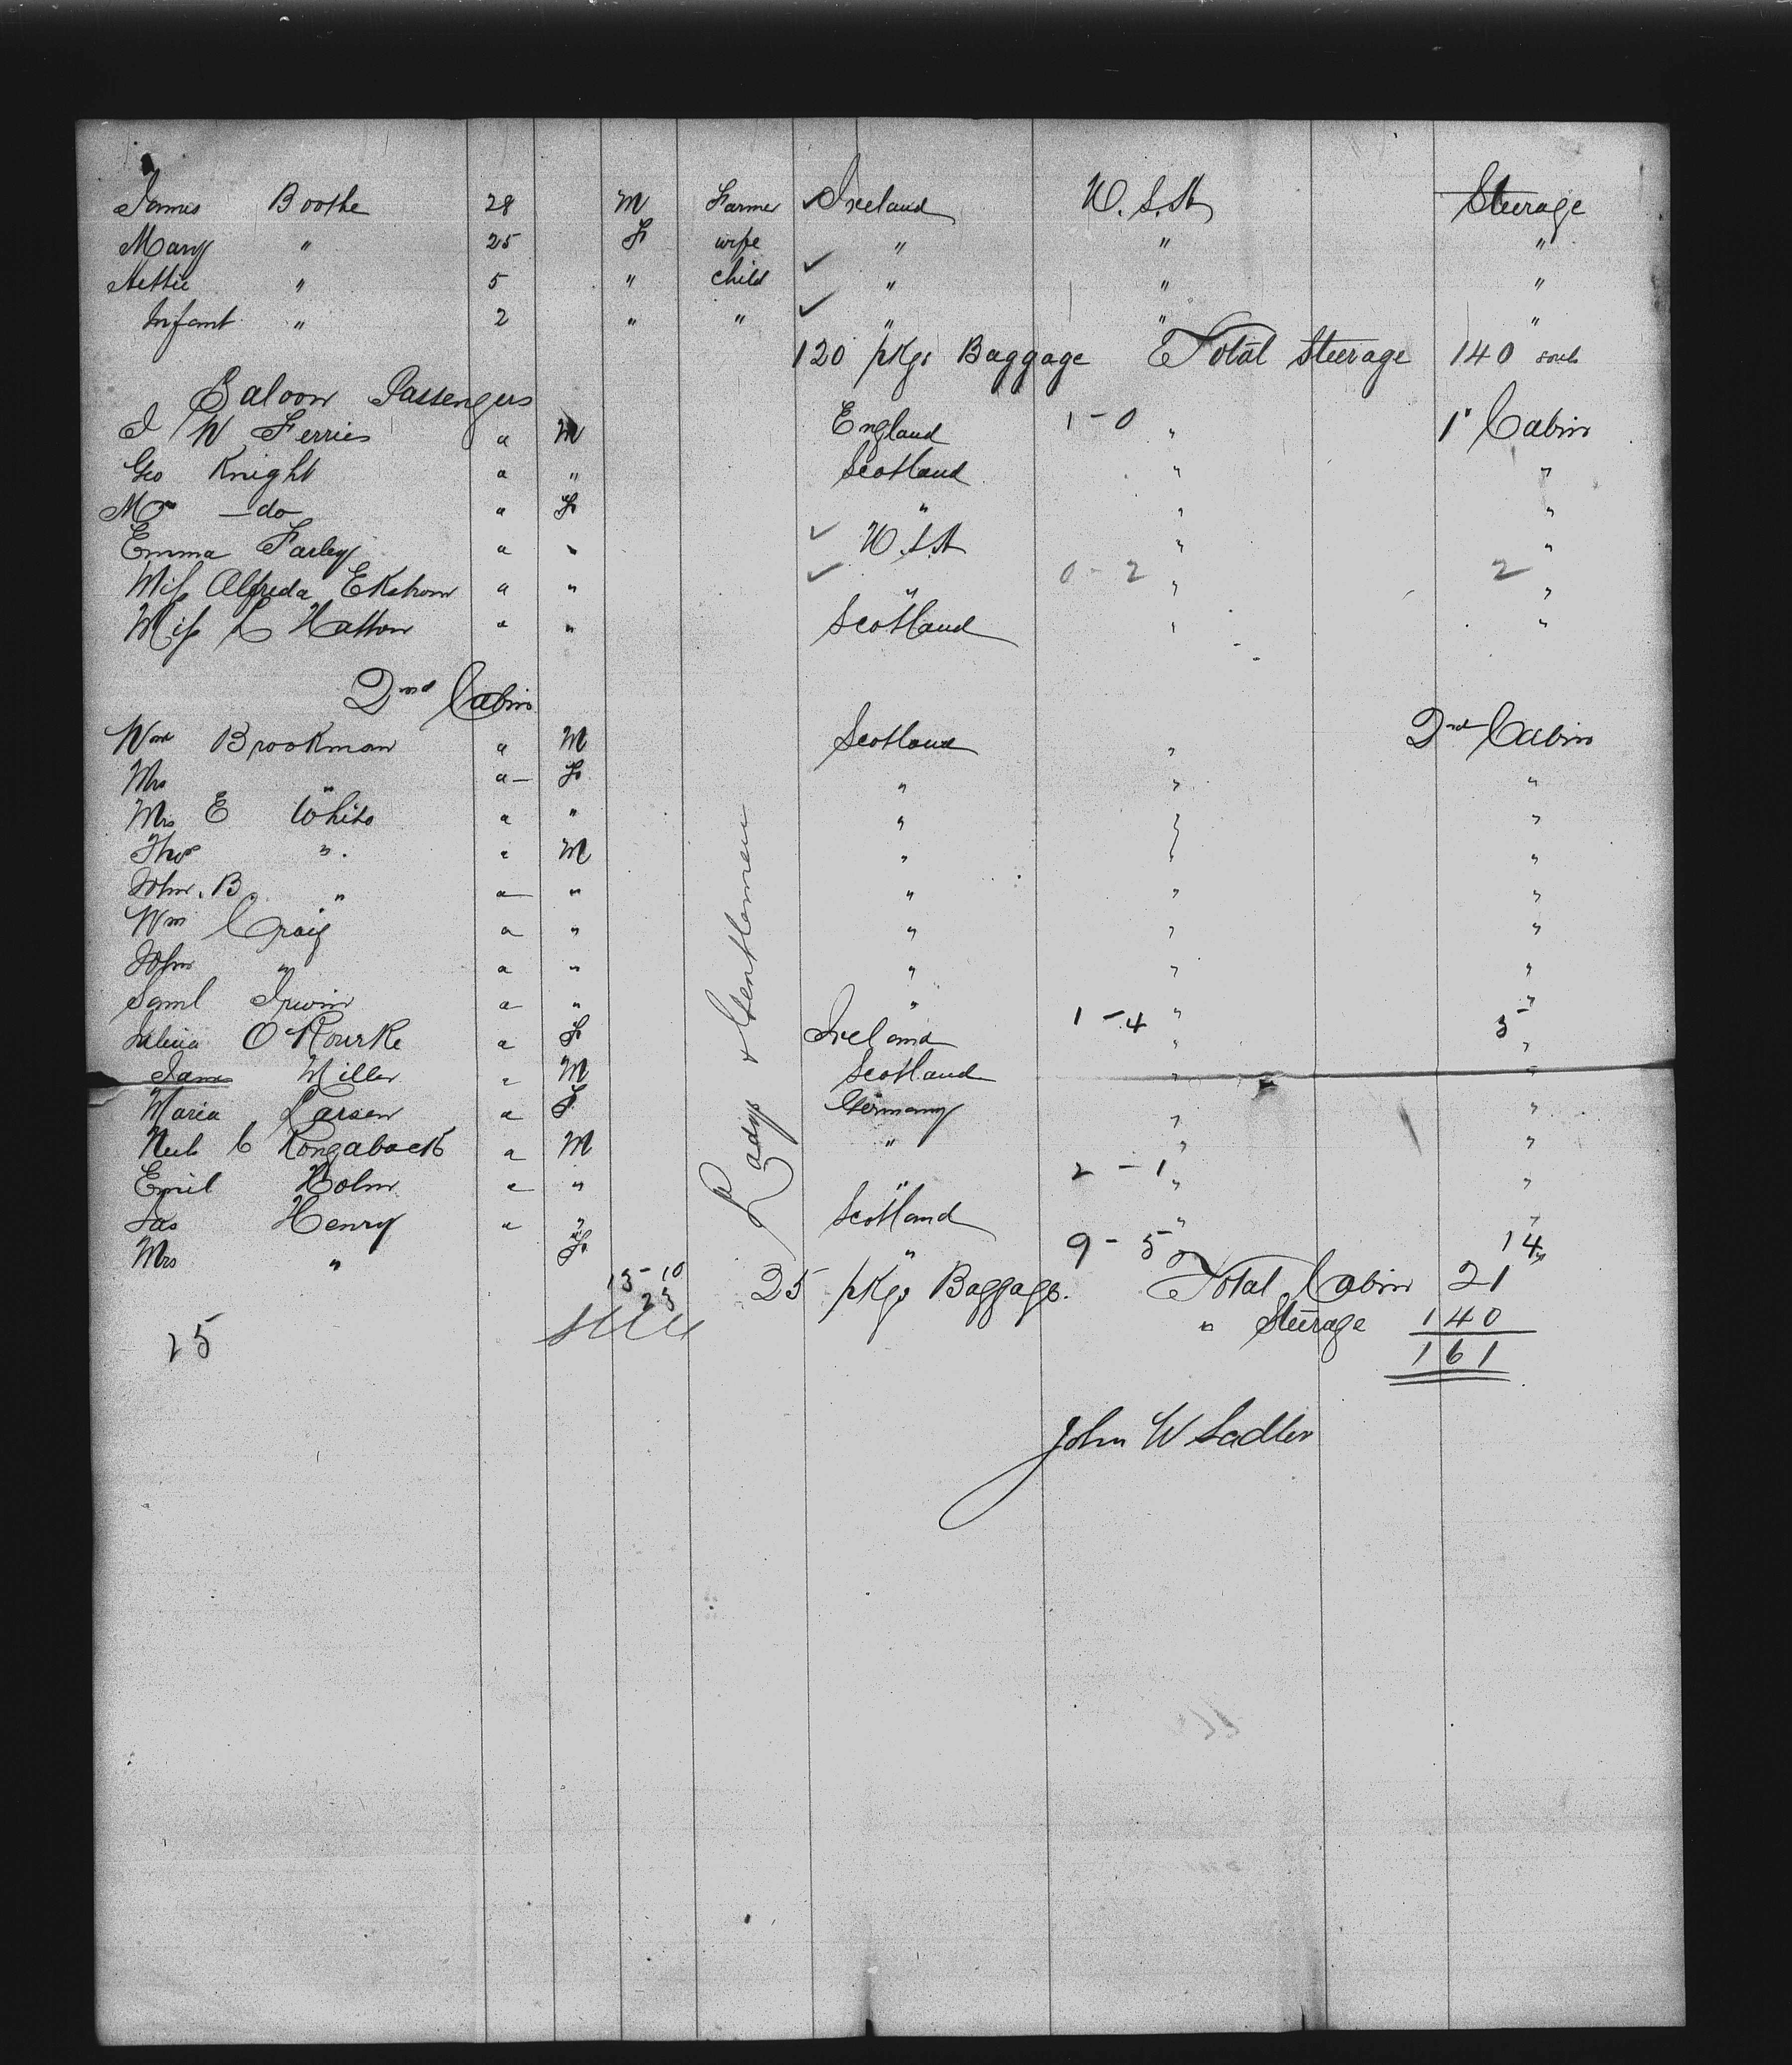 James Boothe 28 M Farmer Ireland U.S.A Steerage
Mary " 25 F wife " " "
Nettie " 5 " child " " "
Infant " 2 " " " " "
120 pkgs Baggage Total Steerage 140 souls
Saloon Passengers
J W Ferries a M England 1-0 " 1st Cabin
Geo Knight a " Scotland " "
Mrs -do- a F " " "
Emma Farley a " U.S.A " "
Miss Alfreda Ekstrom a " " 0-2 " 2 "
Miss L Hatton a " Scotland " "
2nd Cabin
Wm Brookman a M Scotland " 2nd Cabin
Mrs " a F " " "
Mrs E White a " " " "
Thos " a M " " "
John. B. " a " " " "
Wm Craig a " " " "
John " a " " " "
Saml Irwin a " " " "
O'Rourke a F Ireland 1-4 " 5 "
James Miller a M Scotland " "
Maria Larsen a F Germany " "
C a M " " "
Emil Holm a " " 2-1 " "
Jas Henry a " Scotland " "
Mrs " F " 9-5 " 14 "
Ladys & Gentlemen
13-10
23
25 pkgs Baggage. Total Cabin 21
" Steerage 140
25
161
John W Sadler